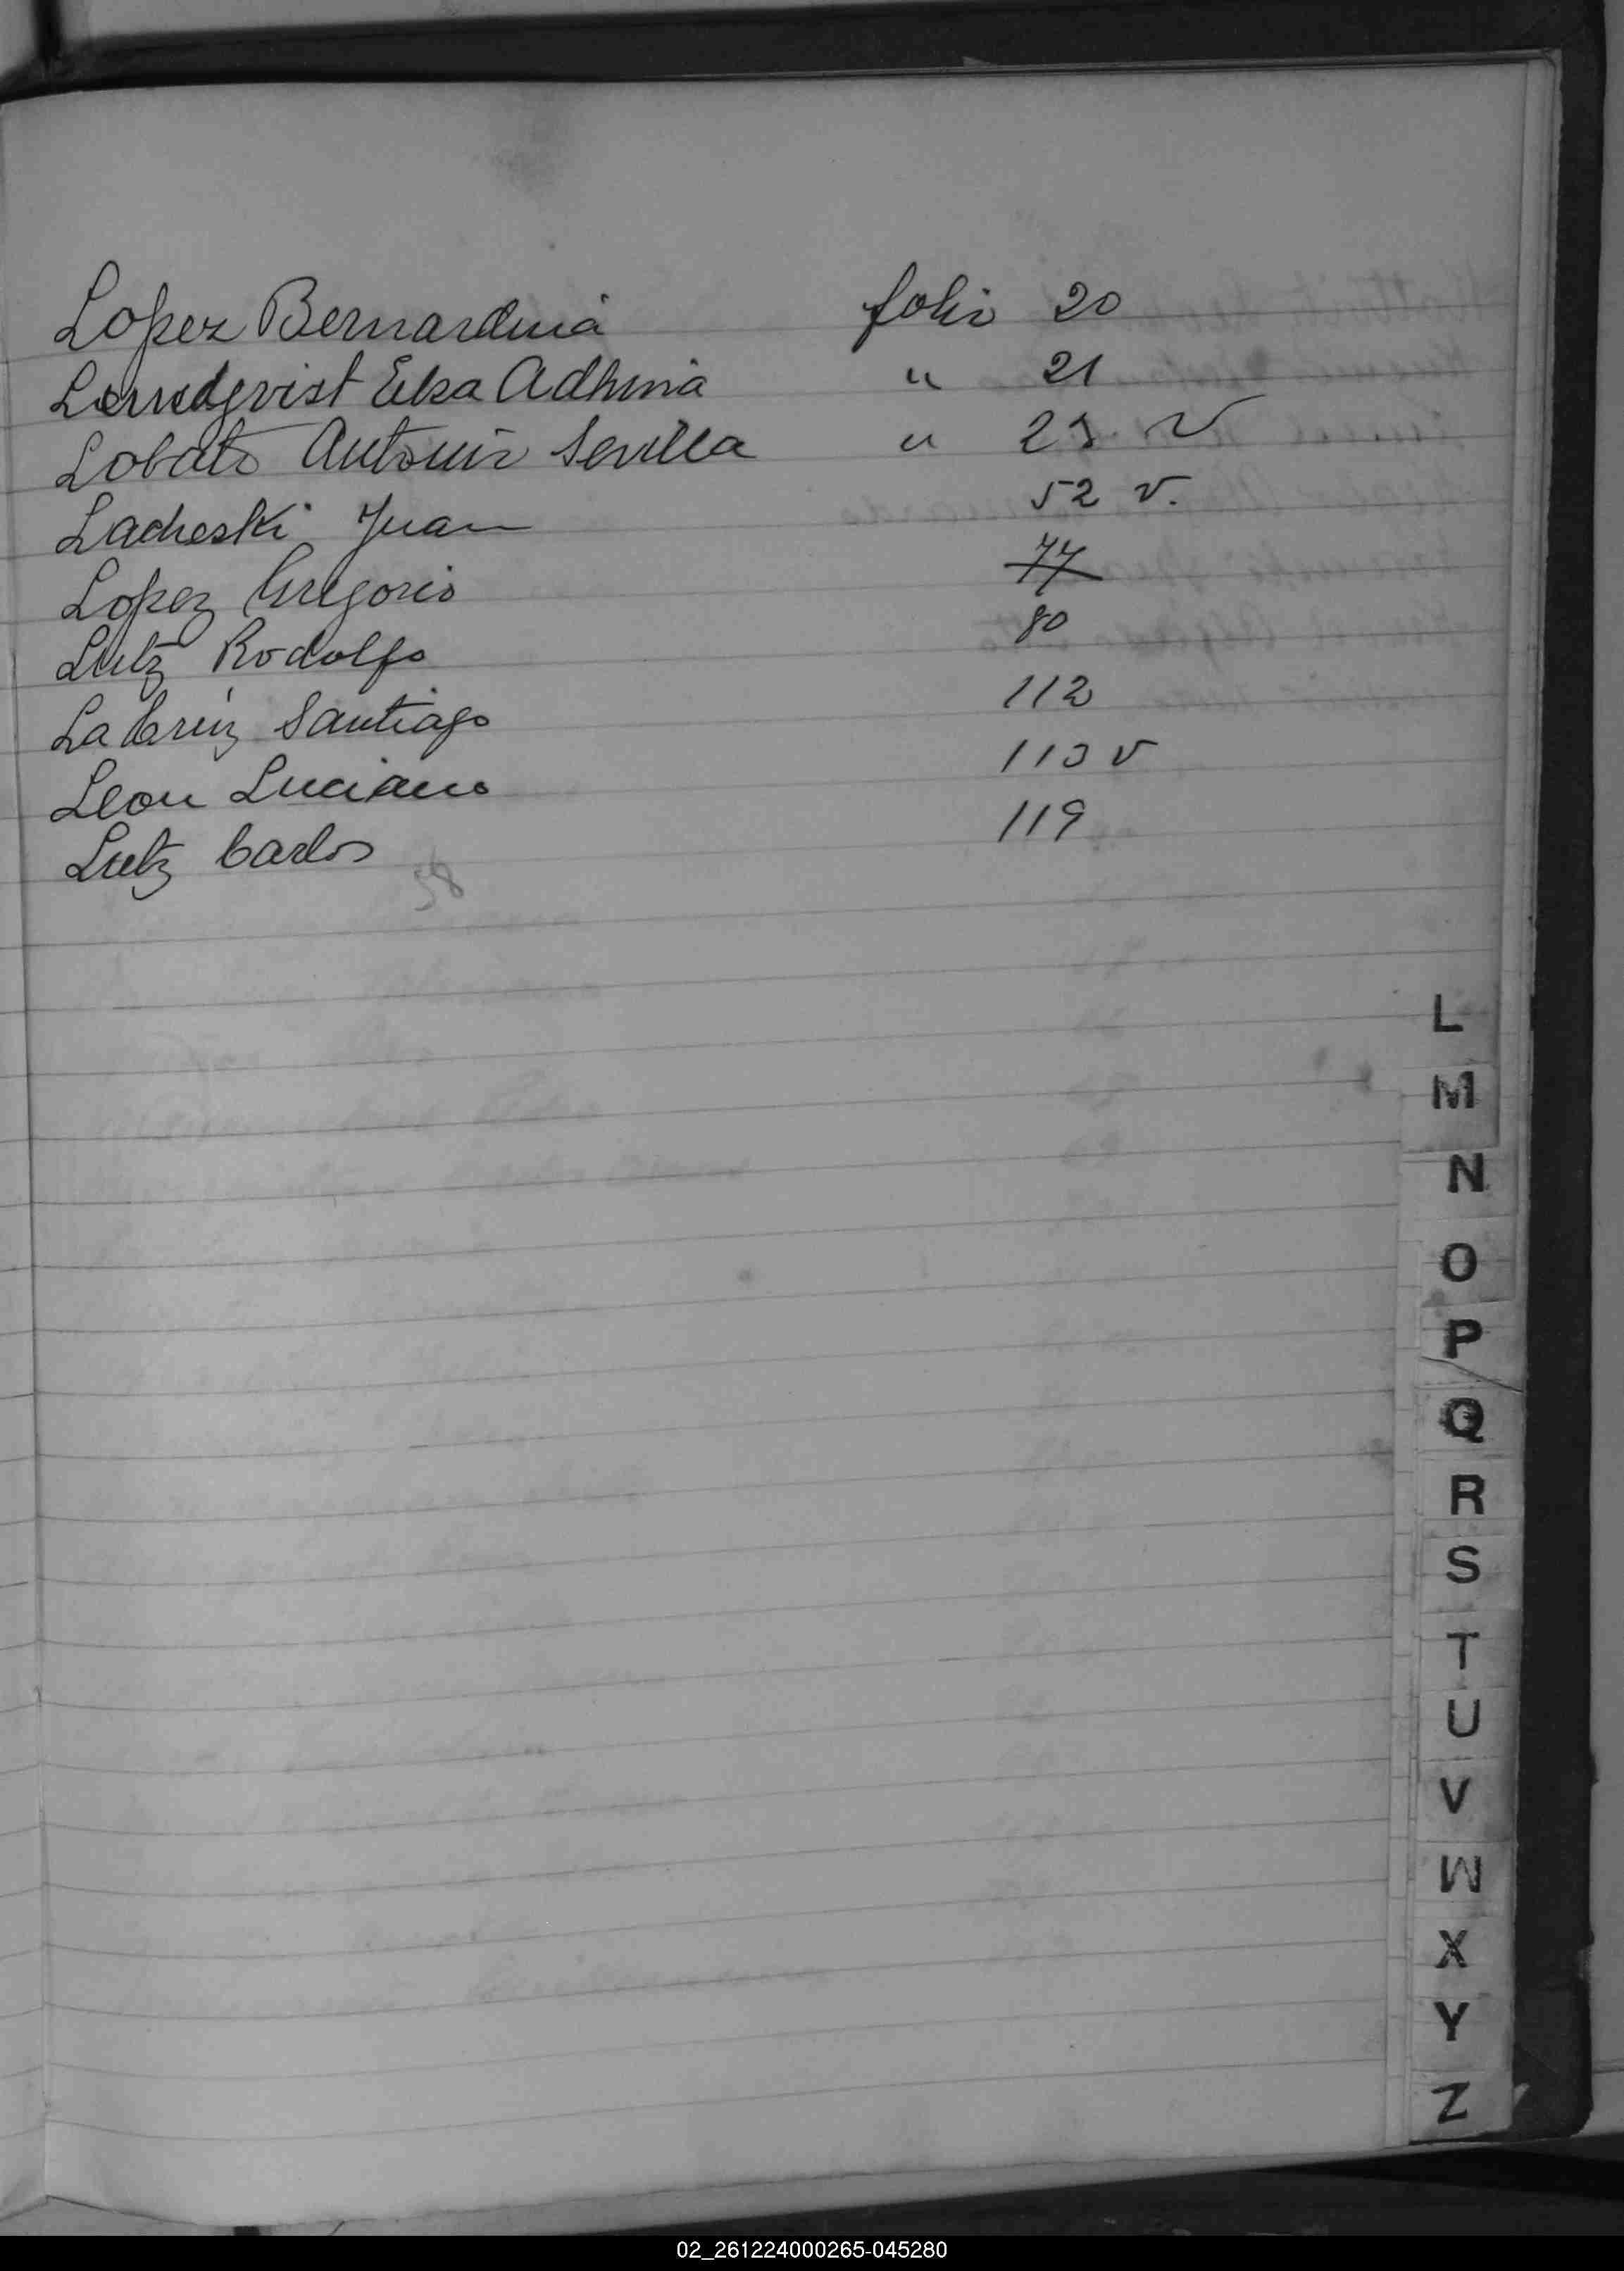 Lopez Bernardina folio 20
Lerndqvist Elsa Adhina " 21
Lobato Antonio Sevilla " 23 v
Lacheski Juan 52 v.
Lopez Gregorio 77
Lutz Rodolfo 80
La Cruz Santiago 112
Leon Luciano 113 v
Lutz Carlos 119
58
L
M
N
O
P
Q
R
S
T
U
V
W
X
Y
Z
02_261224000265-045280